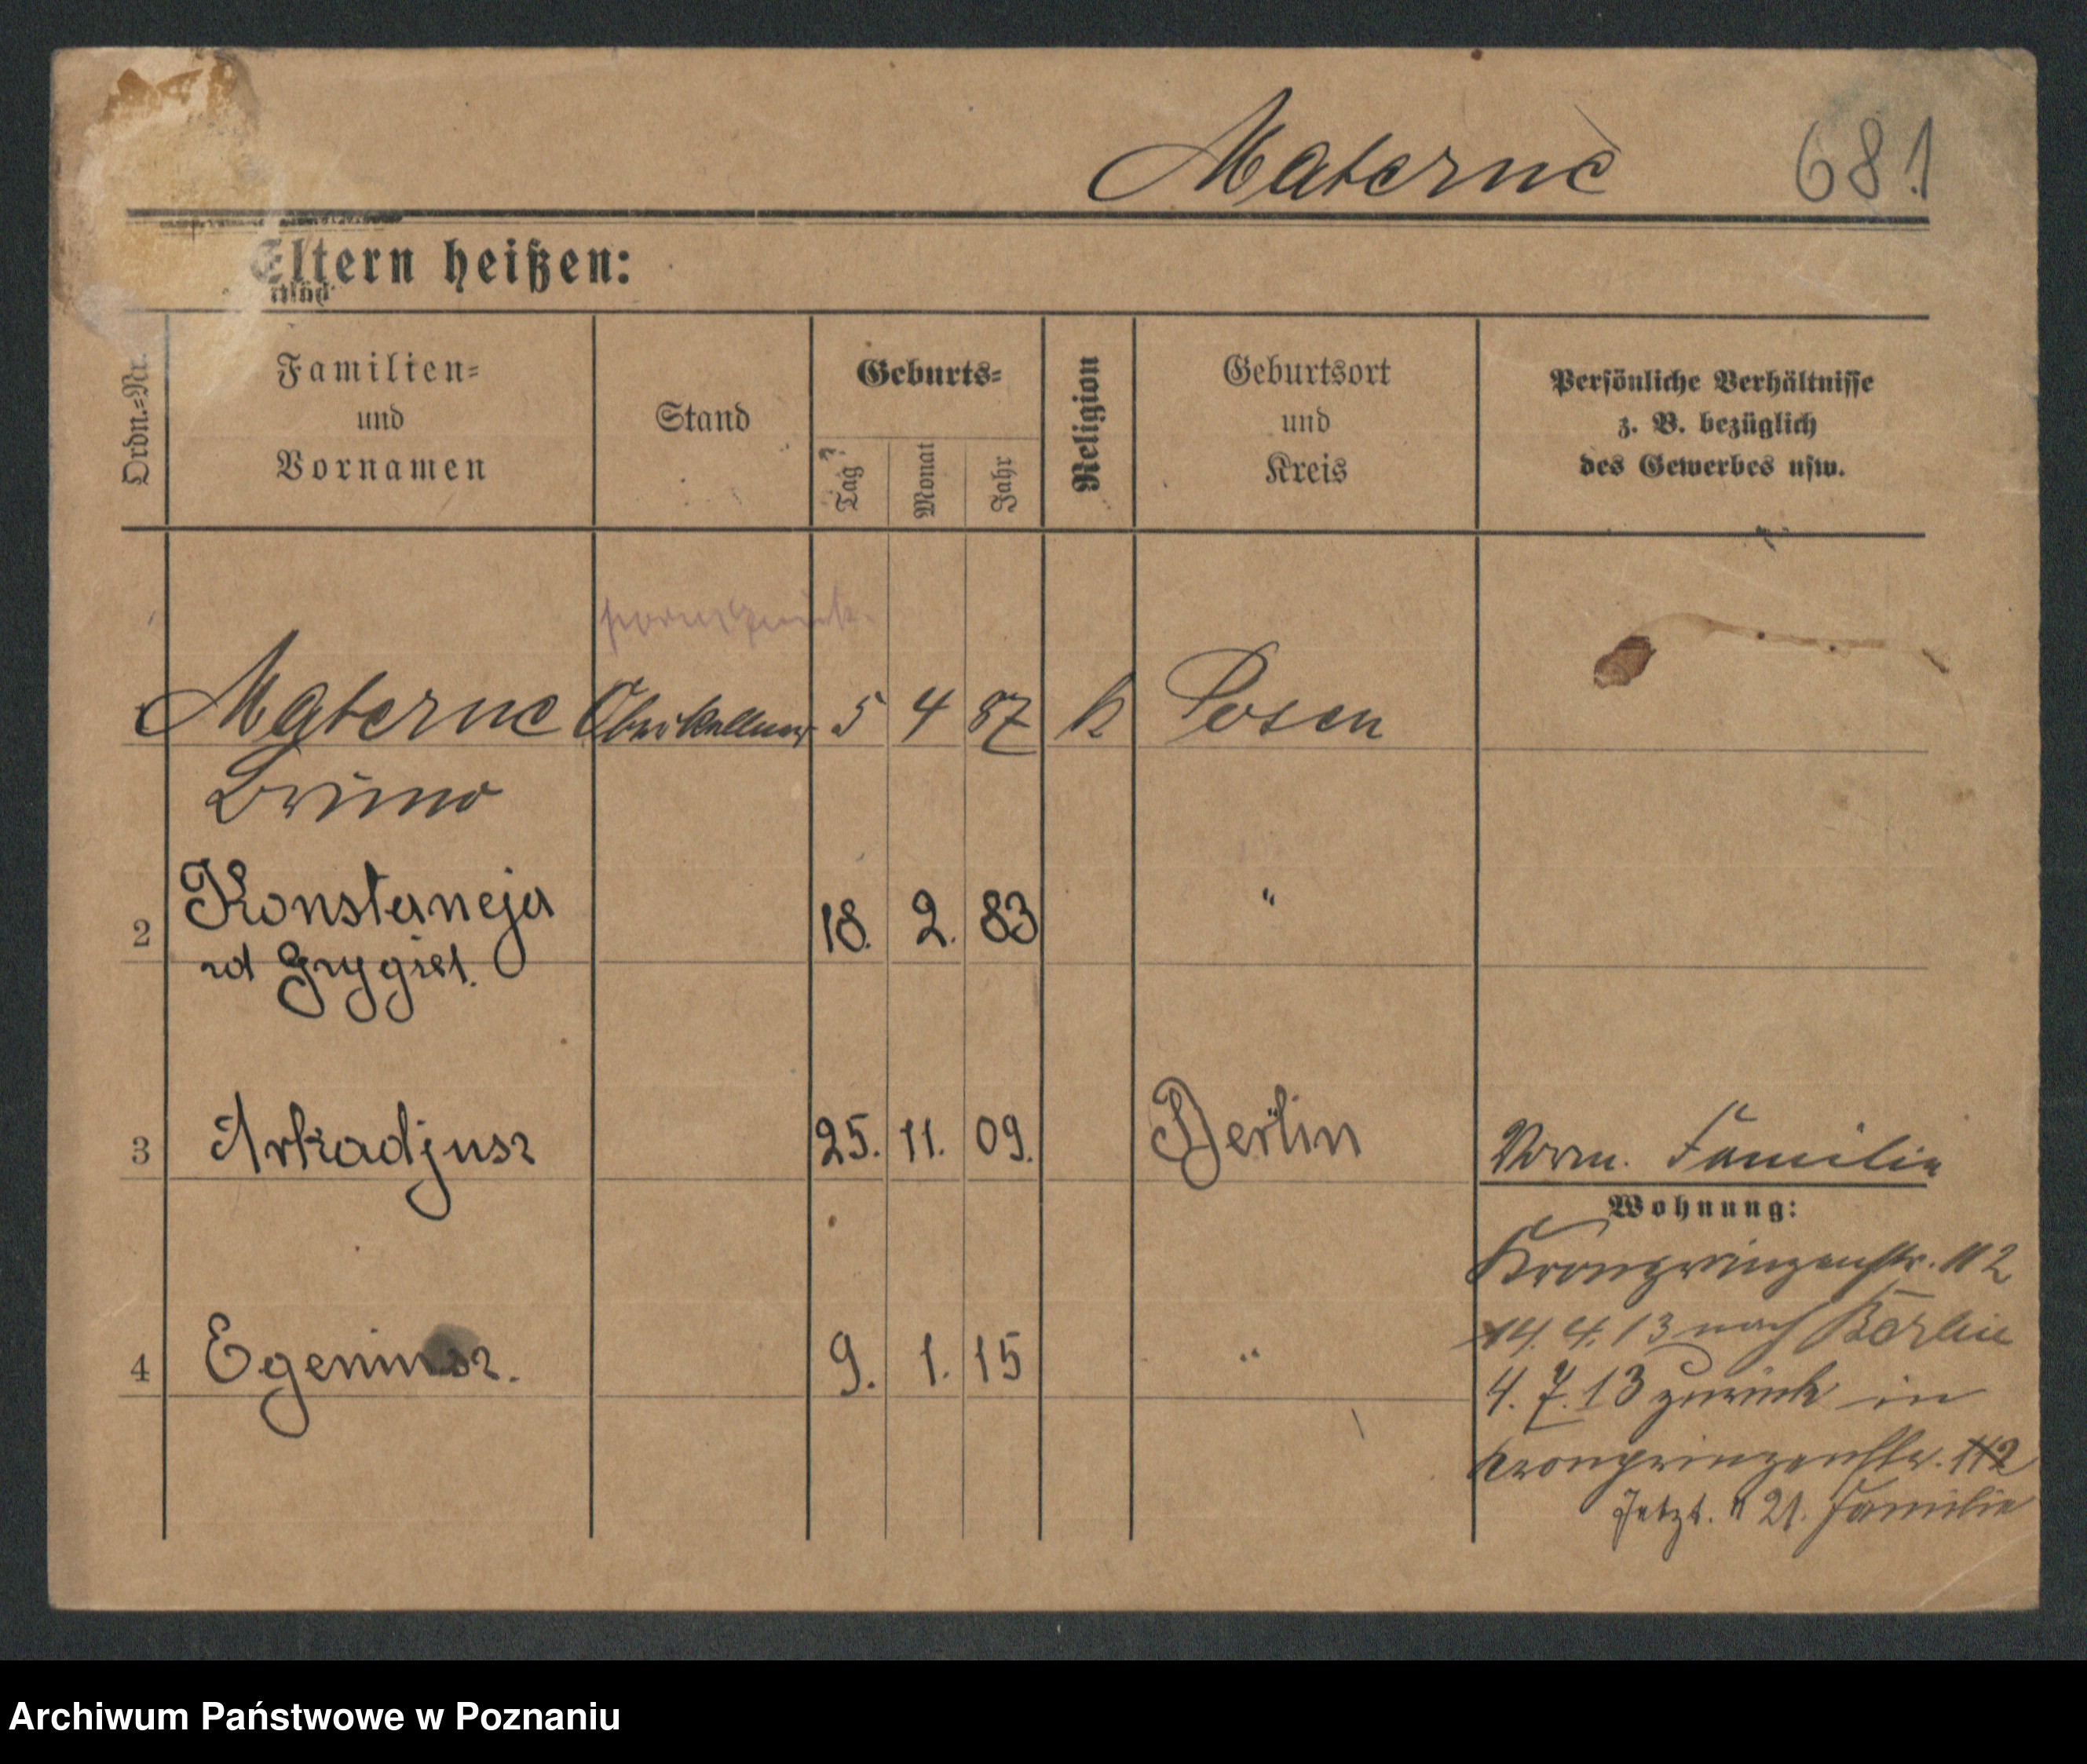 Materne 681
Eltern heißen:
Ordn.=Nr.
Familien=
und
Vornamen
Stand
Geburts=
Tag
Monat
Jahr
Religion
Geburtsort
und
Kreis
Persönliche Verhältnisse
z. B. bezüglich
des Gewerbes usw.
1 Materne Oberkellner 5 4 87 k Posen
Bruno
2 Konstancja 18. 2. 83 "
rd Grygiel.
3 Arkadjusz 25. 11. 09. Berlin Vorm. Familie
Wohnung:
Kronprinzenstr. 112
14. 4. 13 nach Berlin
4 Egeniusz. 9. 1. 15 "
4. 7. 13 zurück in
Kronprinzenstr. 112
Jetzt. " 21. Familie
Archiwum Państwowe w Poznaniu